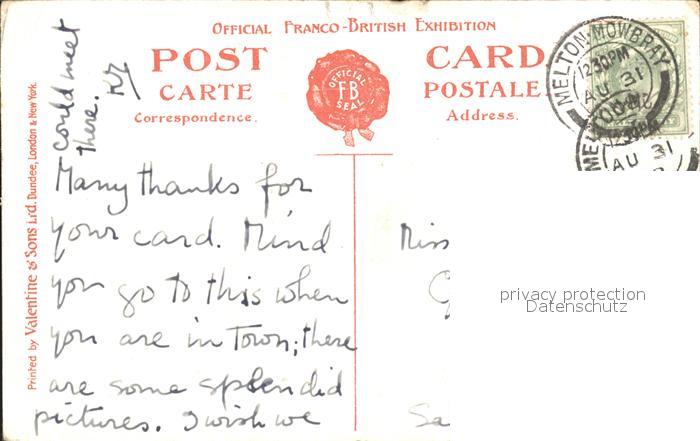 Official Franco-British Exhibition
POST CARD
CARTE POSTALE.
Correspondence. Address.
OFFICIAL
F.B
SEAL
MELTON-MOWBRAY
12.30PM
AU 31
08
12.30PM
AU 31
Printed by Valentine & Sons Ltd. Dundee, London & New York.
Many thanks for
your card. Mind
you go to this when
you are in Town; there
are some splendid
pictures. I wish we
could meet
there.
Miss
Sa
privacy protection
Datenschutz